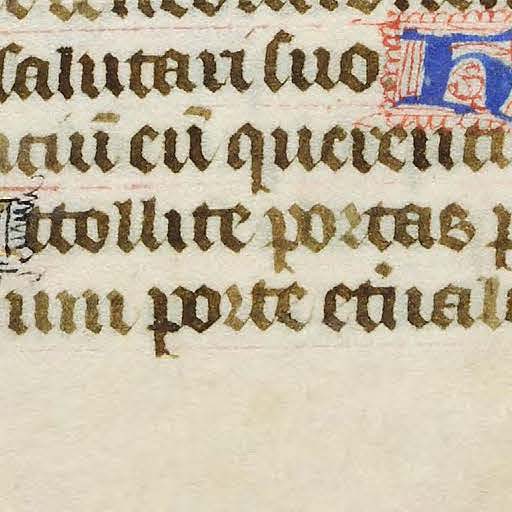 salutari suo H
ciū eū querenti
Attollite portas p
um porte eternal